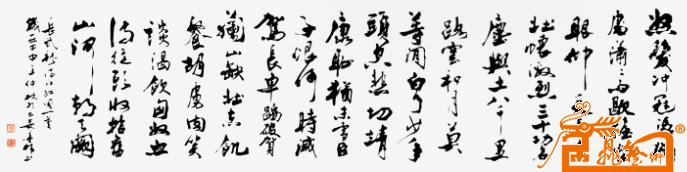 怒髮冲冠凭欄
處瀟瀟雨歇抬
眼仰天
壯懷激烈三十功名
塵與土八千里
路雲和月莫
等閒白了少年
頭空悲切靖
康恥猶未雪臣
子恨何時滅
駕長車踏破賀
蘭山缺壯志飢
餐胡虜肉笑
談渴飲匈奴血
待從頭收拾舊
山河朝天闕
岳武穆滿江紅詞一首